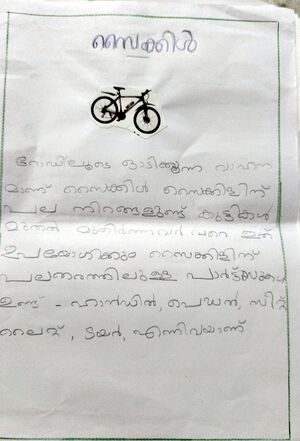 സൈക്കിൾ
റോഡിലൂടെ ഓടിക്കുന്ന വാഹന
മാണ് സൈക്കിൾ സൈക്കിളിന്
പല നിറങ്ങളുണ്ട് കുട്ടികൾ
മുതൽ മുതിർന്നവർ വരെ ഇത്
ഉപയോഗിക്കും സൈക്കിളിന്
പലതരത്തിലുള്ള പാർട്സുകൾ
ഉണ്ട് - ഹാൻഡിൽ, പെഡൽ, സീറ്റ്
ലൈറ്റ്, ടയർ, എന്നിവയാണ്